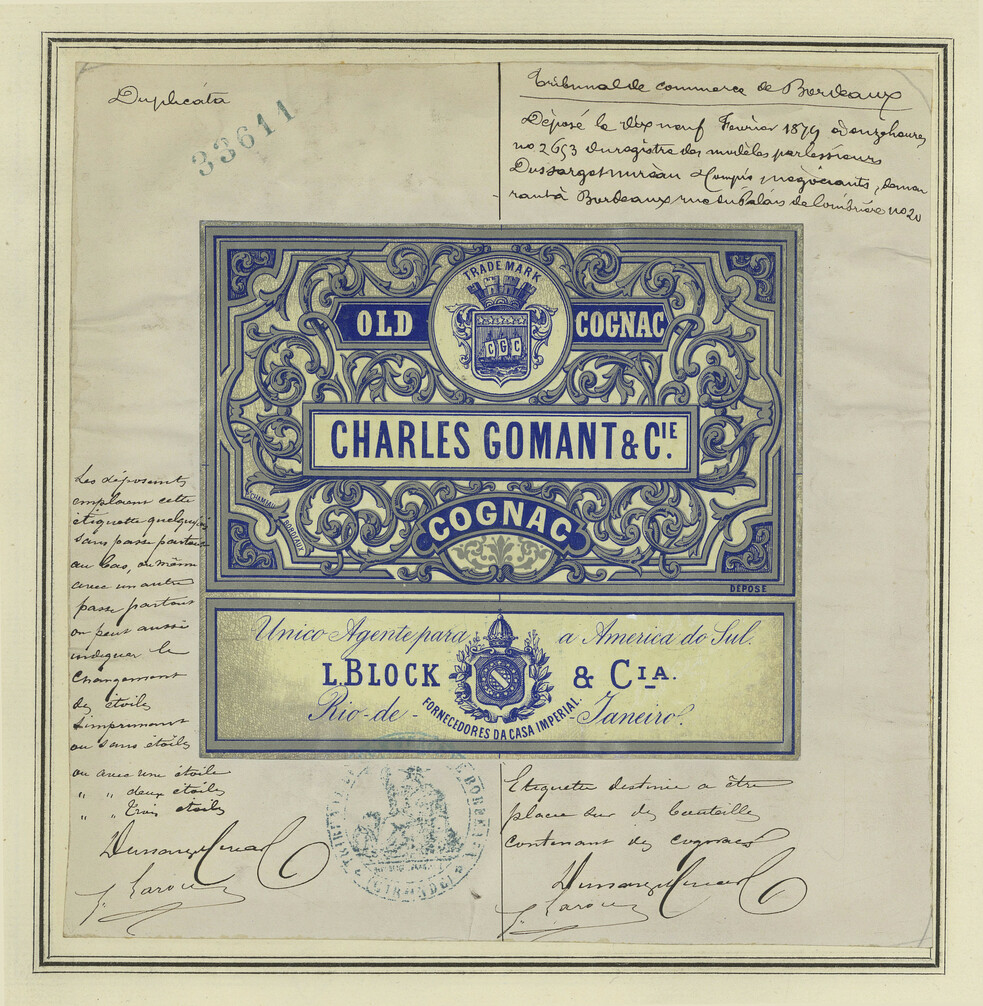 Duplicata
33611
Tribunal de commerce de Bordeaux
Déposé le dix neuf Février 1879 à onze heures
no 2653 du registre des modèles par les sieurs
négociants, demeu
rant à Bordeaux rue du Palais de l'ombrière no 20
TRADE MARK
OLD COGNAC
CGC
CHARLES GOMANT & CIE.
COGNAC
BORDEAUX
DÉPOSÉ
Unico Agente para a America do Sul.
L. BLOCK & CIA.
Rio-de-Janeiro.
FORNECEDORES DA CASA IMPERIAL
Les déposants
emploient cette
étiquette quelquefois
sans passe partout
au bas, ou même
avec un autre
passe partout
on peut aussi
indiquer le
changement
des étoiles
s'imprimant
ou sans étoiles
ou avec une étoile
" " deux étoiles
" " trois étoiles
GIRONDE
Etiquette destinée a être
placée sur des bouteilles
contenant des cognacs